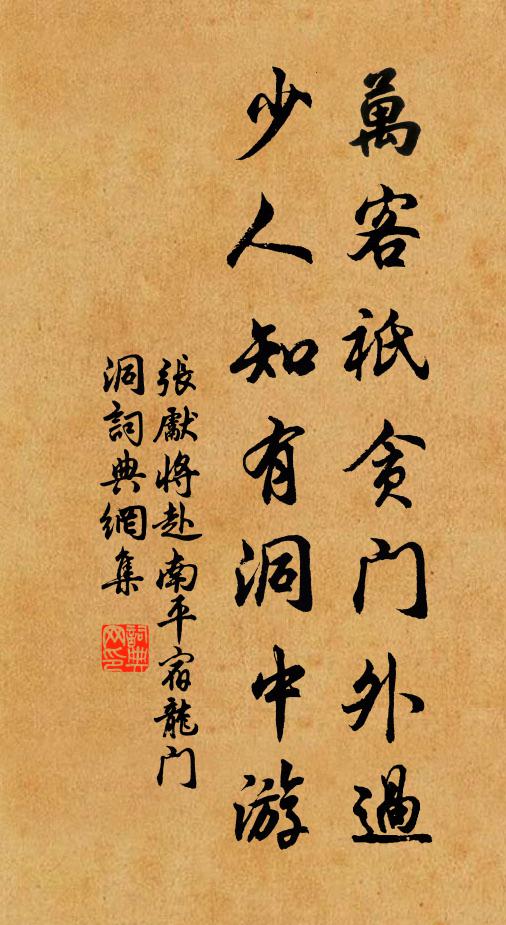 萬客祇貪门外過
少人知有洞中游
張獻將赴南平宿龍门
洞詞典網集
詞典网印